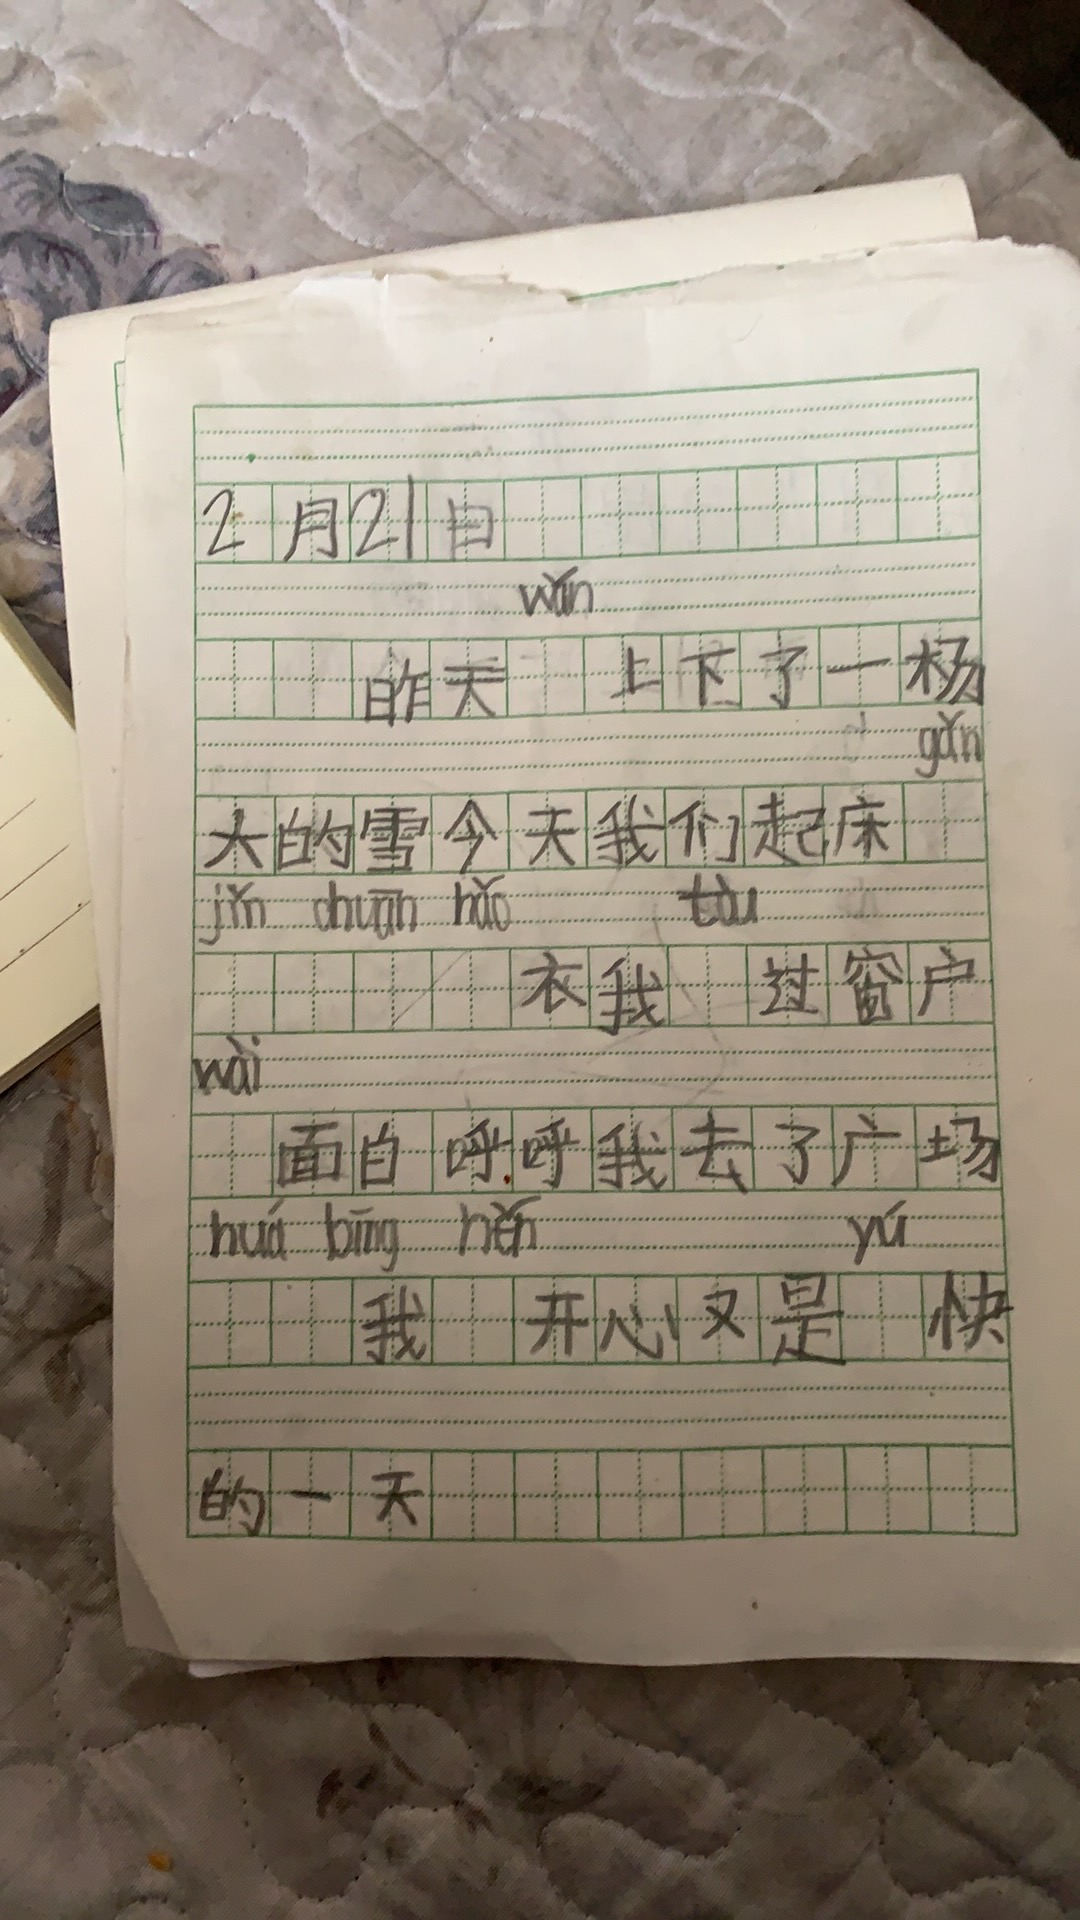 2月21日
wǎn
昨天 上下了一杨
gǎn
大的雪今天我们起床
jǐn chuān hǎo tòu
衣我 过窗户
wài
面白呼呼我去了广场
huá bīng hěn yú
我 开心又是 快
的一天